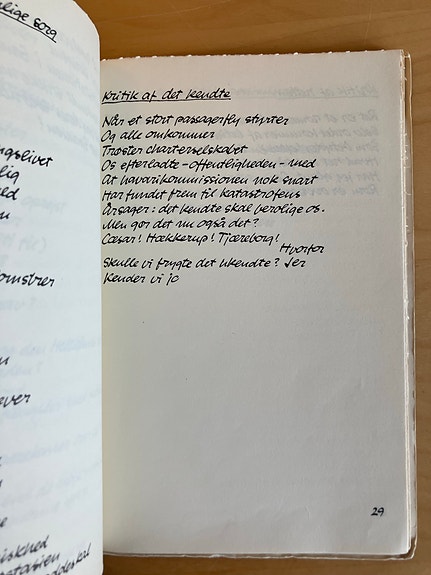 lige sorg
ngslivet
lig
omstrer
ever
iskhed
atasien
ddeskal
Kritik af det kendte
Når et stort passagerfly styrter
Og alle omkommer
Trøster charterselskabet
Os efterladte -offentligheden- med
At havarikommissionen nok snart
Har fundet frem til katastrofens
Årsager: det kendte skal berolige os.
Men gør det nu også det?
Cæsar! Hækkerup! Tjæreborg!
Hvorfor
Skulle vi frygte det ukendte? Jer
Kender vi jo
29